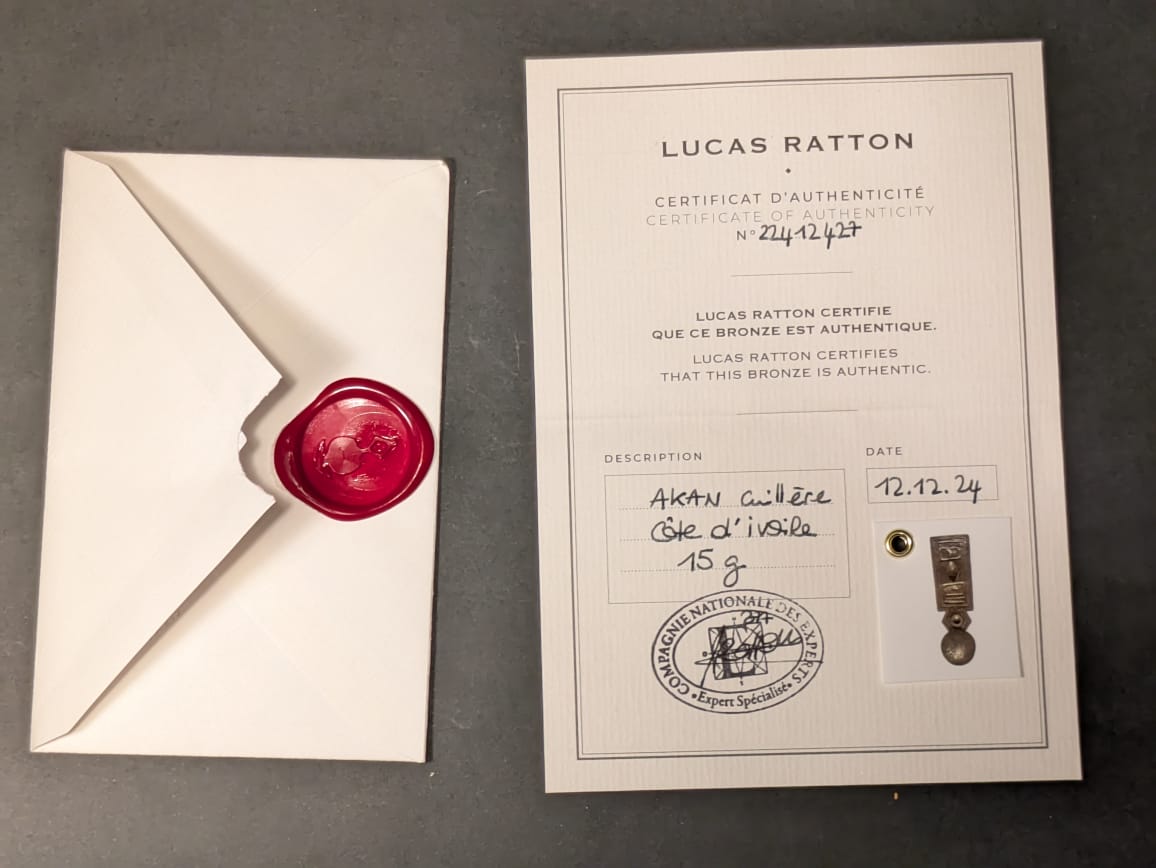 LUCAS RATTON
CERTIFICAT D'AUTHENTICITÉ
CERTIFICATE OF AUTHENTICITY
N° 22412427
LUCAS RATTON CERTIFIE
QUE CE BRONZE EST AUTHENTIQUE.
LUCAS RATTON CERTIFIES
THAT THIS BRONZE IS AUTHENTIC.
DESCRIPTION
AKAN Cuillère
Côte d'ivoire
15 g
DATE
12.12.24
COMPAGNIE NATIONALE DES EXPERTS
• Expert Spécialisé •